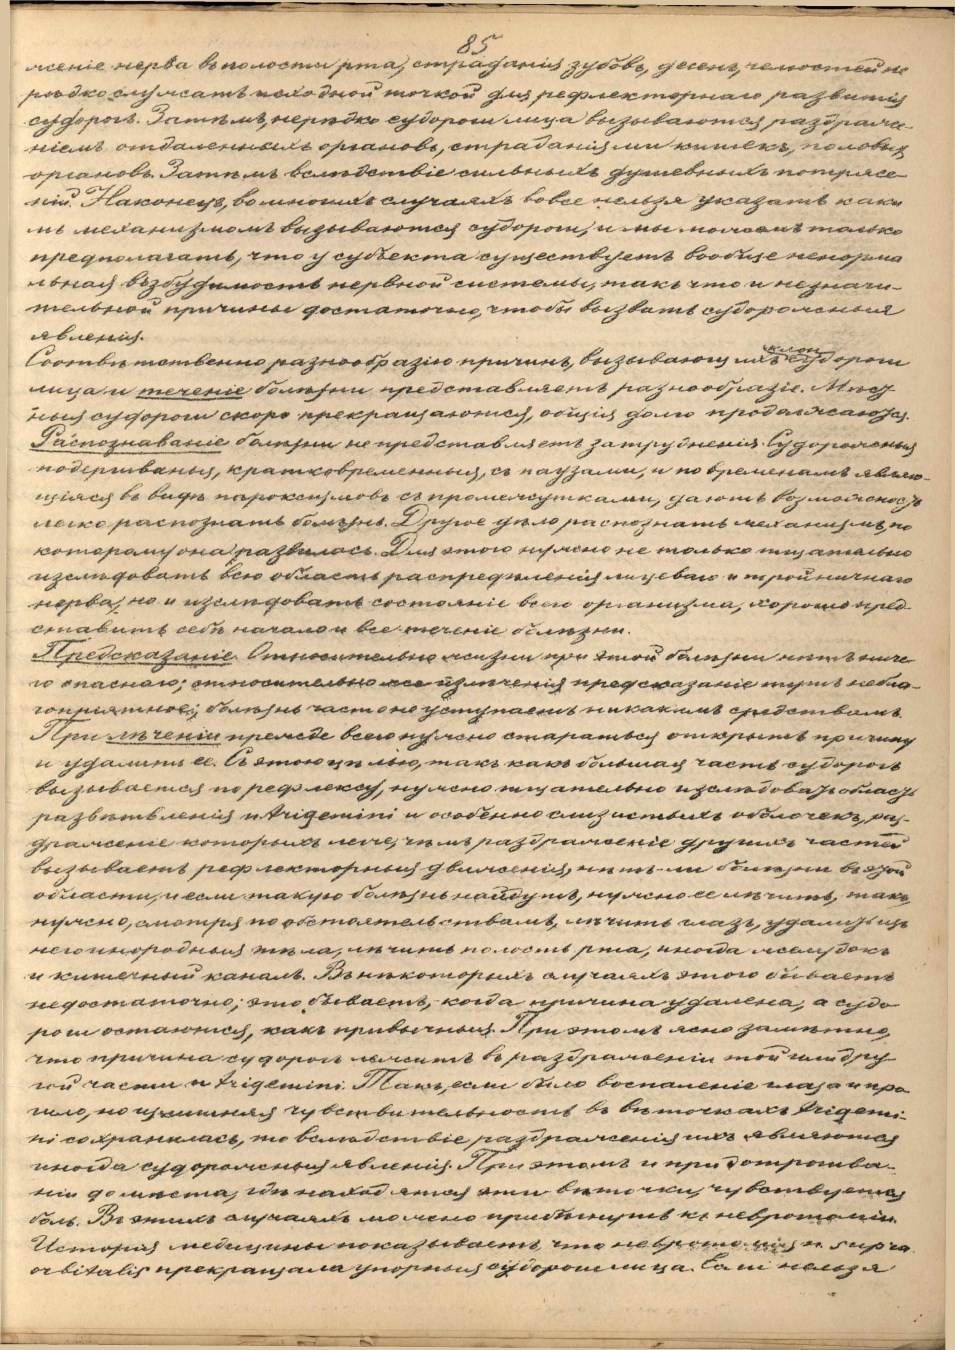 85
женіе нерва въ полости рта, страданія зубовъ, десенъ, челюстей не
рѣдко служатъ исходной точкой для рефлекторнаго развитія
судорогъ. Затѣмъ, нерѣдко судороги лица вызываются раздраже-
ніемъ отдаленныхъ органовъ, страданіями кишекъ, половыхъ
органовъ. Затѣмъ вслѣдствіе сильныхъ душевныхъ потрясе-
ній. Наконецъ, во многихъ случаяхъ вовсе нельзя указать каки
мъ механизмомъ вызываются судороги, и мы можемъ только
предполагать, что у субъекта существуетъ вообще ненорма
льная възбудимость нервной системы, такъ что и незначи-
тельной причины достаточно, чтобы вызвать судорожныя
явленія.
Соотвѣтственно разнообразію причинъ, вызывающихъ клон судороги
лица и теченіе болѣзни представляетъ разнообразіе. Мѣст
ныя судороги скоро прекращаются, общія долго продолжаются.
Распознаваніе болѣзни не представляетъ затрудненія. Судорожныя
подергиванья, кратковременныя, съ паузами, и по временамъ являю-
щіяся въ видѣ пароксизмовъ съ промежутками, даютъ возможность
легко распознать болѣзнь. Другое дѣло распознать механизмъ, по
которому она развилась. Для этого нужно не только тщательно
изслѣдовать всю область распредѣленія лицеваго и тройничнаго
нерва, но и изслѣдовать состояніе всего организма, хорошо пред-
ставить себѣ начало и все теченіе болѣзни.
Предсказаніе. Относительно жизни при этой болѣзни нѣтъ ниче-
го опаснаго; относительно же излѣченія предсказаніе тутъ небла-
гопріятное; болѣзнь часто не уступаетъ никакимъ средствамъ.
При лѣченіи прежде всего нужно стараться открыть причину
и удалить ее. Съ этою цѣлью, такъ какъ большая часть судорогъ
вызывается по рефлексу, нужно тщательно изслѣдовать область
развѣтвленія n trigemini и особенно слизистыхъ оболочекъ, раз-
драженіе которыхъ легче, чѣмъ раздраженіе другихъ частей
вызываетъ рефлекторныя движенія, нѣтъ-ли болѣзни въ этой
области, и если такую болѣзнь найдутъ, нужно ее лѣчить, такъ,
нужно, смотря по обстоятельствамъ, лѣчить глазъ, удалить изъ
него инородныя тѣла, лѣчить полость рта, иногда желудокъ
и кишечный каналъ. Въ нѣкоторыхъ случаяхъ этого бываетъ
недостаточно; это бываетъ, когда причина удалена, а судо
роги остаются, какъ привычныя. При этомъ ясно замѣтно,
что причина судорогъ лежитъ въ раздраженіи той или дру-
гой части n trigemini. Такъ, если было воспаленіе глаза и про
шло, но излишняя чувствительность въ вѣточкахъ trigemi-
ni сохранилась, то вслѣдствіе раздраженія ихъ являются
иногда судорожныя явленія. При этомъ и при дотрогива-
ніи до мѣста, гдѣ находятся эти вѣточки, чувствуется
боль. Въ этихъ случаяхъ можно прибѣгнуть къ невротоміи.
Исторія медицины показываетъ, что невротомія n. supra
orbitalis прекращала упорныя судороги лица. Если нельзя